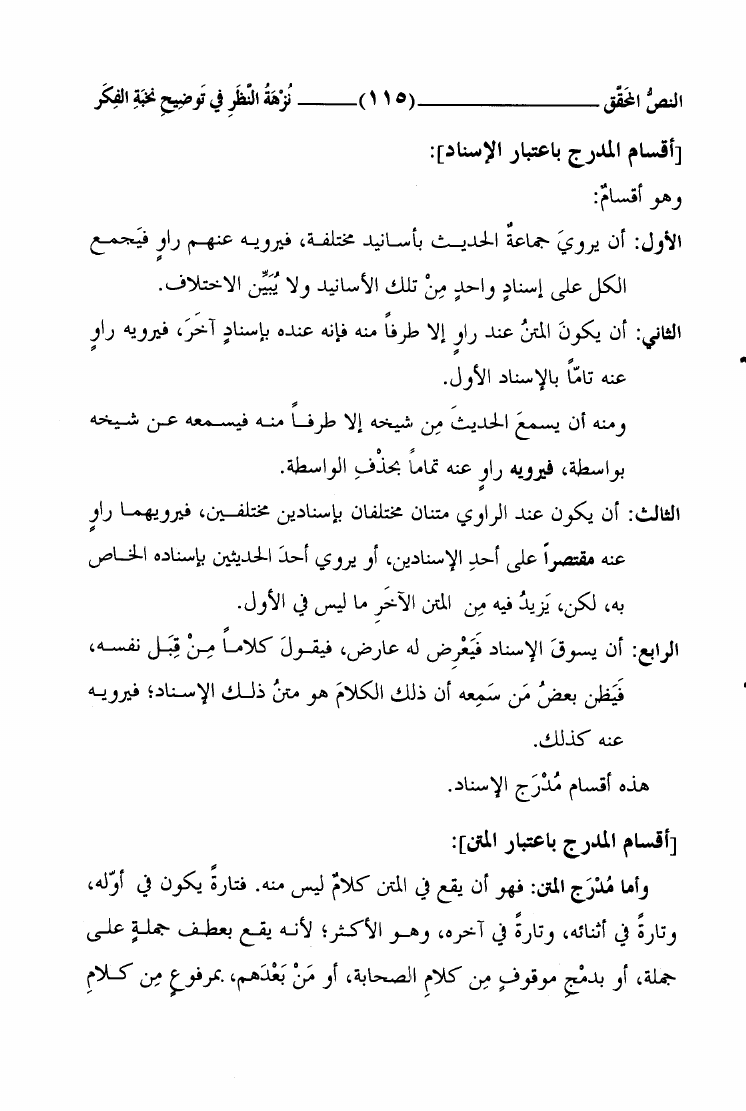 النصُّ المحَقَّق ــــــــــــــــــــــــ (١١٥) ــــــــ نُزْهَةُ النَّظَرِ في تَوضِيحِ نخبَةِ الفِكَر
[أقسام المدرج باعتبار الإسناد]:
وهو أقسامٌ:
الأول: أن يرويَ جماعةٌ الحديث بأسانيد مختلفة، فيرويه عنهم راوٍ فيَجمع
الكل على إسنادٍ واحدٍ مِنْ تلك الأسانيد ولا يُبَيِّن الاختلاف.
الثاني: أن يكونَ المتنُ عند راوٍ إلا طرفاً منه فإنه عنده بإسنادٍ آخَرَ، فيرويه راوٍ
عنه تامّاً بالإسناد الأول.
ومنه أن يسمعَ الحديثَ مِن شيخه إلا طرفاً منه فيسمعه عن شيخه
بواسطة، فيرويه راوٍ عنه تماماً بحَذْفِ الواسطة.
الثالث: أن يكون عند الراوي متنان مختلفان بإسنادين مختلفين، فيرويهما راوٍ
عنه مقتصراً على أحدِ الإسنادين، أو يروي أحدَ الحديثين بإسناده الخاص
به، لكن، يَزيدُ فيه مِن المتن الآخَرِ ما ليس في الأول.
الرابع: أن يسوقَ الإسناد فَيَعْرِض له عارض، فيقولَ كلاماً مِنْ قِبَلِ نفسه،
فيَظن بعضُ مَن سَمِعه أن ذلك الكلامَ هو متنُ ذلك الإسناد؛ فيرويه
عنه كذلك.
هذه أقسام مُدْرَج الإسناد.
[أقسام المدرج باعتبار المتن]:
وأما مُدْرَج المتن: فهو أن يقع في المتن كلامٌ ليس منه. فتارةً يكون في أوّله،
وتارةً في أثنائه، وتارةً في آخره، وهو الأكثر؛ لأنه يقع بعطف جملةٍ على
جملة، أو بدمْجِ موقوفٍ مِن كلامِ الصحابة، أو مَنْ بَعْدَهم، بمرفوعٍ مِن كلامِ